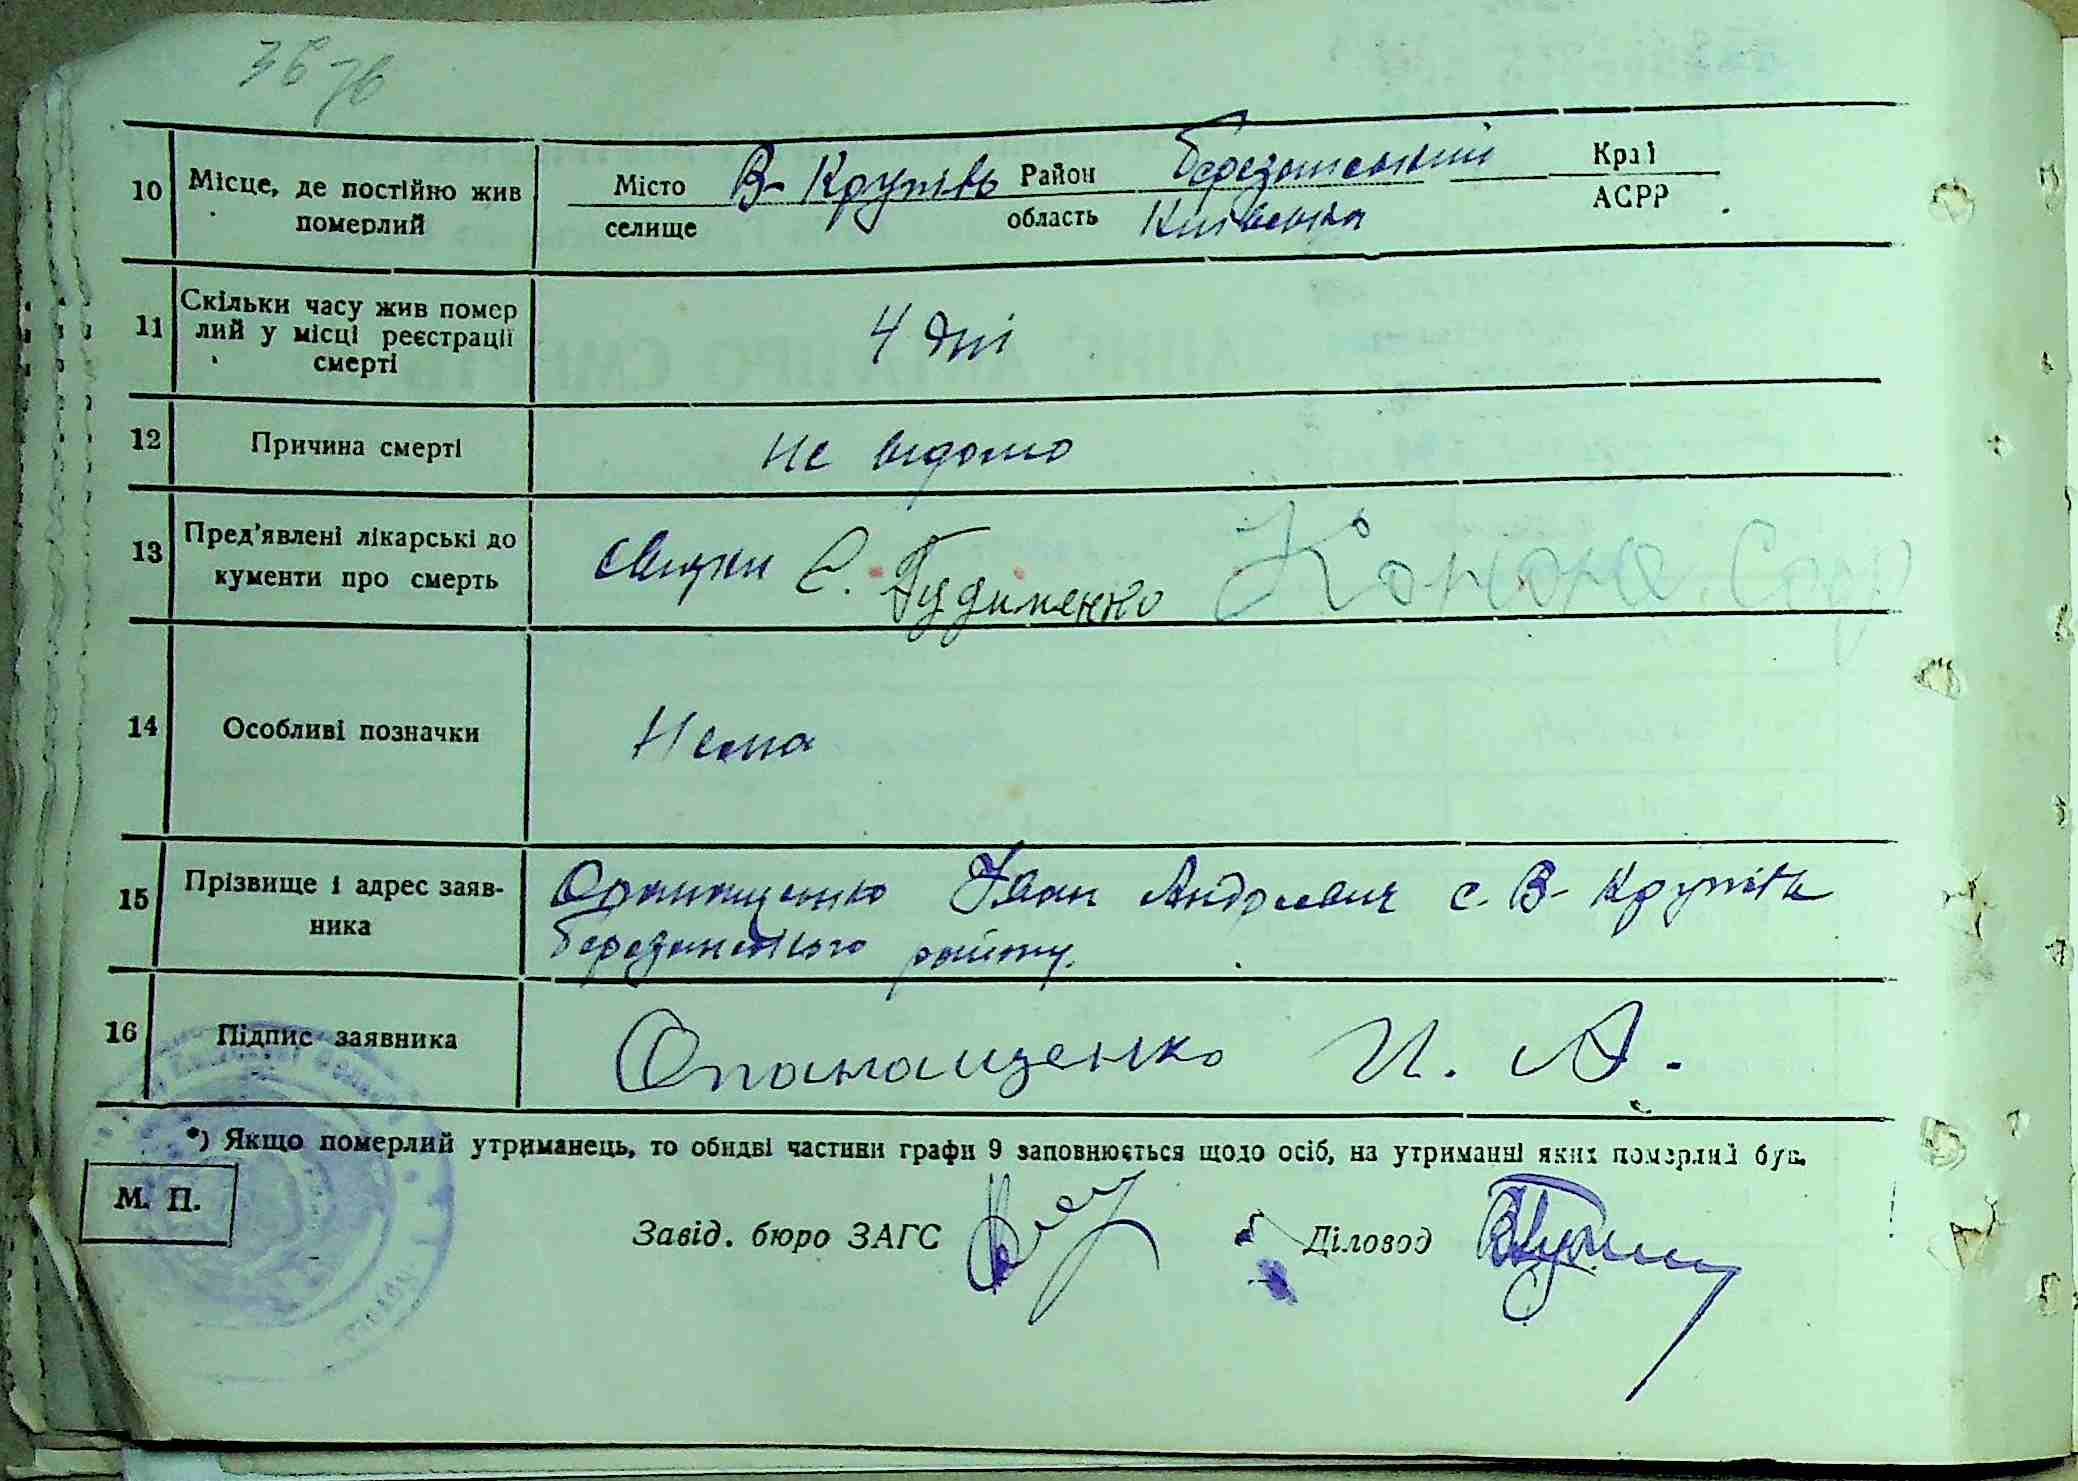 36 зв
10 Місце, де постійно жив померлий
Місто В-Крупіль Район Березанський Край
селище область Київська АСРР
11 Скільки часу жив помер
лий у місці реєстрації
смерті
4 дні
12 Причина смерті не відомо
13 Пред'явлені лікарські до
кументи про смерть
свідки Є. Гудименко
14 Особливі позначки Нема
15 Прізвище і адрес заяв-
ника
Опанащенко Іван Андрієвич с. В-Крупіль
Березанського району.
16 Підпис заявника Опанащенко И. А.
*) Якщо померлий утриманець, то обидві частини графи 9 заповнюється щодо осіб, на утриманні яких померлий був.
М. П.
Завід. бюро ЗАГС Діловод